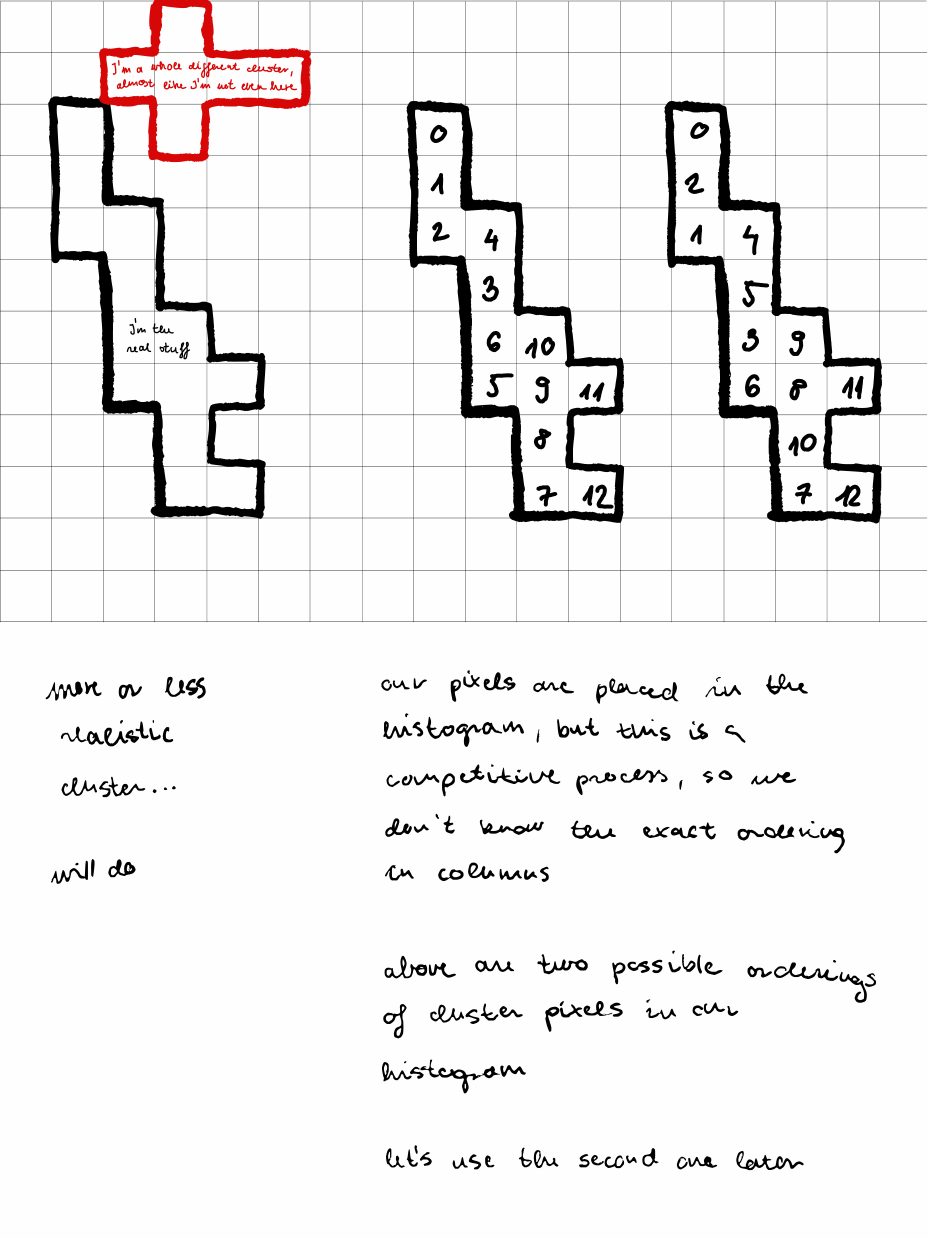 I'm a whole different cluster,
almost like I'm not even here
I'm the
real stuff
0
1
2 4
3
6 10
5 9 11
8
7 12
0
2
1 4
5
3 9
6 8 11
10
7 12
more or less
realistic
cluster...
will do
our pixels are placed in the
histogram, but this is a
competitive process, so we
don't know the exact ordering
in columns
above are two possible orderings
of cluster pixels in our
histogram
let's use the second one later